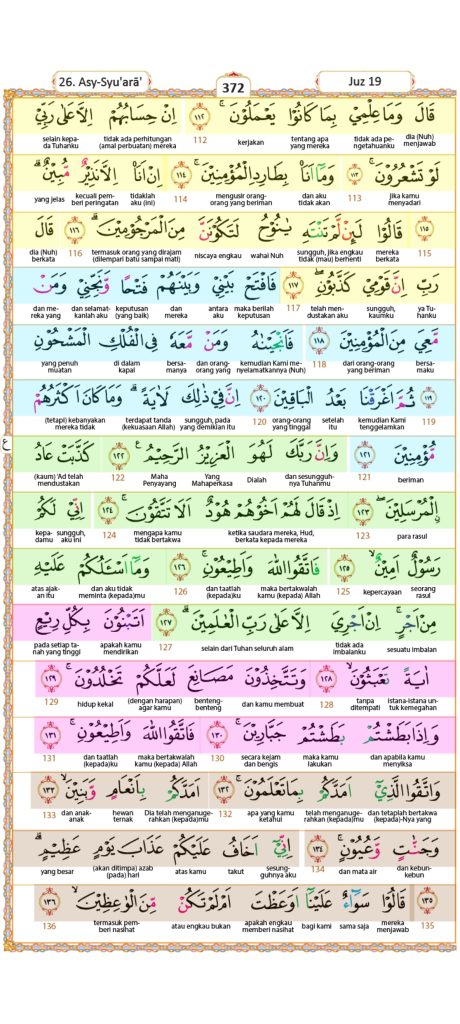 26. Asy-Syu'arā'
372
Juz 19
قَالَ وَمَا عِلْمِيْ بِمَا كَانُوْا يَعْمَلُوْنَ ۚ ١١٢ اِنْ حِسَابُهُمْ اِلَّا عَلٰى رَبِّيْ
dia (Nuh) menjawab tidak ada pe-ngetahuanku tentang apa yang mereka kerjakan 112 tidak ada perhitungan (amal perbuatan) mereka selain kepa-da Tuhanku
لَوْ تَشْعُرُوْنَ ۚ ١١٣ وَمَآ اَنَا۠ بِطَارِدِ الْمُؤْمِنِيْنَ ۚ ١١٤ اِنْ اَنَا۠ اِلَّا نَذِيْرٌ مُّبِيْنٌ ۗ
jika kamu menyadari 113 dan aku tidak akan mengusir orang-orang yang beriman 114 tidaklah aku (ini) kecuali pem-beri peringatan yang jelas
١١٥ قَالُوْا لَىِٕنْ لَّمْ تَنْتَهِ يٰنُوْحُ لَتَكُوْنَنَّ مِنَ الْمَرْجُوْمِيْنَ ۗ ١١٦ قَالَ
115 mereka berkata sungguh, jika engkau tidak (mau) berhenti wahai Nuh niscaya engkau termasuk orang yang dirajam (dilempari batu sampai mati) 116 dia (Nuh) berkata
رَبِّ اِنَّ قَوْمِيْ كَذَّبُوْنِ ۖ ١١٧ فَافْتَحْ بَيْنِيْ وَبَيْنَهُمْ فَتْحًا وَّنَجِّنِيْ وَمَنْ
ya Tu-hanku sungguh, kaumku telah men-dustakan aku 117 maka berilah keputusan antara aku dan mereka keputusan (yang baik) dan selamat-kanlah aku dan me-reka yang
مَّعِيَ مِنَ الْمُؤْمِنِيْنَ ١١٨ فَاَنْجَيْنٰهُ وَمَنْ مَّعَهٗ فِى الْفُلْكِ الْمَشْحُوْنِ
bersa-maku dari orang-orang yang beriman 118 kemudian Kami me-nyelamatkannya (Nuh) dan orang-orang yang bersa-manya di dalam kapal yang penuh muatan
١١٩ ثُمَّ اَغْرَقْنَا بَعْدُ الْبَاقِيْنَ ١٢٠ اِنَّ فِيْ ذٰلِكَ لَاٰيَةً ۗ وَمَا كَانَ اَكْثَرُهُمْ
119 kemudian Kami tenggelamkan setelah itu orang-orang yang tinggal 120 sungguh, pada yang demikian itu terdapat tanda (kekuasaan Allah) (tetapi) kebanyakan mereka tidak
مُّؤْمِنِيْنَ ١٢١ وَاِنَّ رَبَّكَ لَهُوَ الْعَزِيْزُ الرَّحِيْمُ ۚ ١٢٢ كَذَّبَتْ عَادُ
beriman 121 dan sesungguh-nya Tuhanmu Dialah Yang Mahaperkasa Maha Penyayang 122 (kaum) 'Ad telah mendustakan
ع
ࣙالْمُرْسَلِيْنَ ۖ ١٢٣ اِذْ قَالَ لَهُمْ اَخُوْهُمْ هُوْدٌ اَلَا تَتَّقُوْنَ ۚ ١٢٤ اِنِّيْ لَكُمْ
para rasul 123 ketika saudara mereka, Hud, berkata kepada mereka mengapa kamu tidak bertakwa 124 sungguh, aku ini kepa-damu
رَسُوْلٌ اَمِيْنٌ ۙ ١٢٥ فَاتَّقُوا اللّٰهَ وَاَطِيْعُوْنِ ۚ ١٢٦ وَمَآ اَسْـَٔلُكُمْ عَلَيْهِ
seorang rasul kepercayaan 125 maka bertakwalah kamu (kepada) Allah dan taatlah (kepada)ku 126 dan aku tidak meminta (kepada)mu atas ajak-an itu
مِنْ اَجْرٍ ۚ اِنْ اَجْرِيَ اِلَّا عَلٰى رَبِّ الْعٰلَمِيْنَ ۗ ١٢٧ اَتَبْنُوْنَ بِكُلِّ رِيْعٍ
sesuatu imbalan tidak ada imbalanku selain dari Tuhan seluruh alam 127 apakah kamu mendirikan pada setiap ta-nah yang tinggi
اٰيَةً تَعْبَثُوْنَ ۙ ١٢٨ وَتَتَّخِذُوْنَ مَصَانِعَ لَعَلَّكُمْ تَخْلُدُوْنَ ۚ ١٢٩
istana-istana un-tuk kemegahan tanpa ditempati 128 dan kamu membuat benteng-benteng (dengan harapan) agar kamu hidup kekal 129
وَاِذَا بَطَشْتُمْ بَطَشْتُمْ جَبَّارِيْنَ ۚ ١٣٠ فَاتَّقُوا اللّٰهَ وَاَطِيْعُوْنِ ۚ ١٣١
dan apabila kamu menyiksa maka kamu lakukan secara kejam dan bengis 130 maka bertakwalah kamu (kepada) Allah dan taatlah (kepada)ku 131
وَاتَّقُوا الَّذِيْٓ اَمَدَّكُمْ بِمَا تَعْلَمُوْنَ ۚ ١٣٢ اَمَدَّكُمْ بِاَنْعَامٍ وَّبَنِيْنَ ۙ ١٣٣
dan tetaplah bertakwa (kepada)-Nya yang telah menganuge-rahkan (kepada)mu apa yang kamu ketahui 132 Dia telah menganuge-rahkan (kepada)mu hewan ternak dan anak-anak 133
وَجَنّٰتٍ وَّعُيُوْنٍ ۚ ١٣٤ اِنِّيْٓ اَخَافُ عَلَيْكُمْ عَذَابَ يَوْمٍ عَظِيْمٍ ۗ
dan kebun-kebun dan mata air 134 sesung-guhnya aku takut atas kamu (akan ditimpa) azab (pada) hari yang besar
١٣٥ قَالُوْا سَوَاۤءٌ عَلَيْنَآ اَوَعَظْتَ اَمْ لَمْ تَكُنْ مِّنَ الْوٰعِظِيْنَ ۙ ١٣٦
135 mereka menjawab sama saja bagi kami apakah engkau memberi nasihat atau engkau bukan termasuk pem-beri nasihat 136